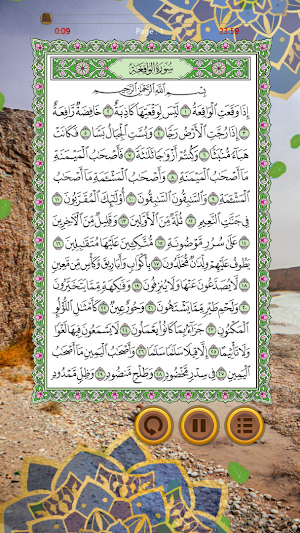 0:09
Page : 1
23:59
سُورَةُ الوَاقِعَة
بِسْمِ اللَّهِ الرَّحْمَٰنِ الرَّحِيمِ
إِذَا وَقَعَتِ الْوَاقِعَةُ ١ لَيْسَ لِوَقْعَتِهَا كَاذِبَةٌ ٢ خَافِضَةٌ رَّافِعَةٌ
٣ إِذَا رُجَّتِ الْأَرْضُ رَجًّا ٤ وَبُسَّتِ الْجِبَالُ بَسًّا ٥ فَكَانَتْ
هَبَاءً مُّنبَثًّا ٦ وَكُنتُمْ أَزْوَاجًا ثَلَاثَةً ٧ فَأَصْحَابُ الْمَيْمَنَةِ
مَا أَصْحَابُ الْمَيْمَنَةِ ٨ وَأَصْحَابُ الْمَشْأَمَةِ مَا أَصْحَابُ
الْمَشْأَمَةِ ٩ وَالسَّابِقُونَ السَّابِقُونَ ١٠ أُولَٰئِكَ الْمُقَرَّبُونَ ١١
فِي جَنَّاتِ النَّعِيمِ ١٢ ثُلَّةٌ مِّنَ الْأَوَّلِينَ ١٣ وَقَلِيلٌ مِّنَ الْآخِرِينَ
١٤ عَلَىٰ سُرُرٍ مَّوْضُونَةٍ ١٥ مُّتَّكِئِينَ عَلَيْهَا مُتَقَابِلِينَ ١٦
يَطُوفُ عَلَيْهِمْ وِلْدَانٌ مُّخَلَّدُونَ ١٧ بِأَكْوَابٍ وَأَبَارِيقَ وَكَأْسٍ مِّن مَّعِينٍ
١٨ لَّا يُصَدَّعُونَ عَنْهَا وَلَا يُنزِفُونَ ١٩ وَفَاكِهَةٍ مِّمَّا يَتَخَيَّرُونَ
٢٠ وَلَحْمِ طَيْرٍ مِّمَّا يَشْتَهُونَ ٢١ وَحُورٌ عِينٌ ٢٢ كَأَمْثَالِ اللُّؤْلُؤِ
الْمَكْنُونِ ٢٣ جَزَاءً بِمَا كَانُوا يَعْمَلُونَ ٢٤ لَا يَسْمَعُونَ فِيهَا لَغْوًا
وَلَا تَأْثِيمًا ٢٥ إِلَّا قِيلًا سَلَامًا سَلَامًا ٢٦ وَأَصْحَابُ الْيَمِينِ مَا أَصْحَابُ
الْيَمِينِ ٢٧ فِي سِدْرٍ مَّخْضُودٍ ٢٨ وَطَلْحٍ مَّنضُودٍ ٢٩ وَظِلٍّ مَّمْدُودٍ